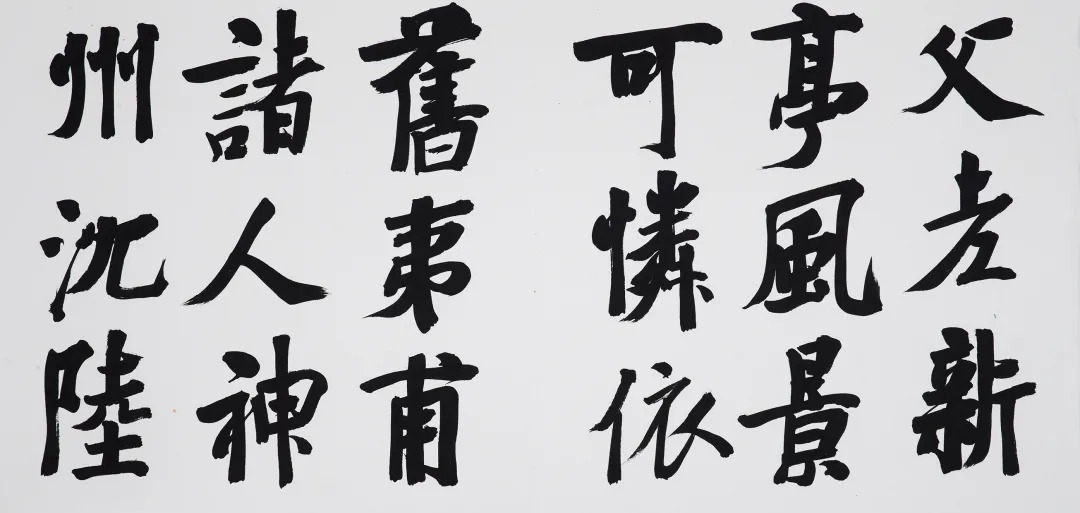 父老新
亭風景
可憐依
舊夷甫
諸人神
州沈陸